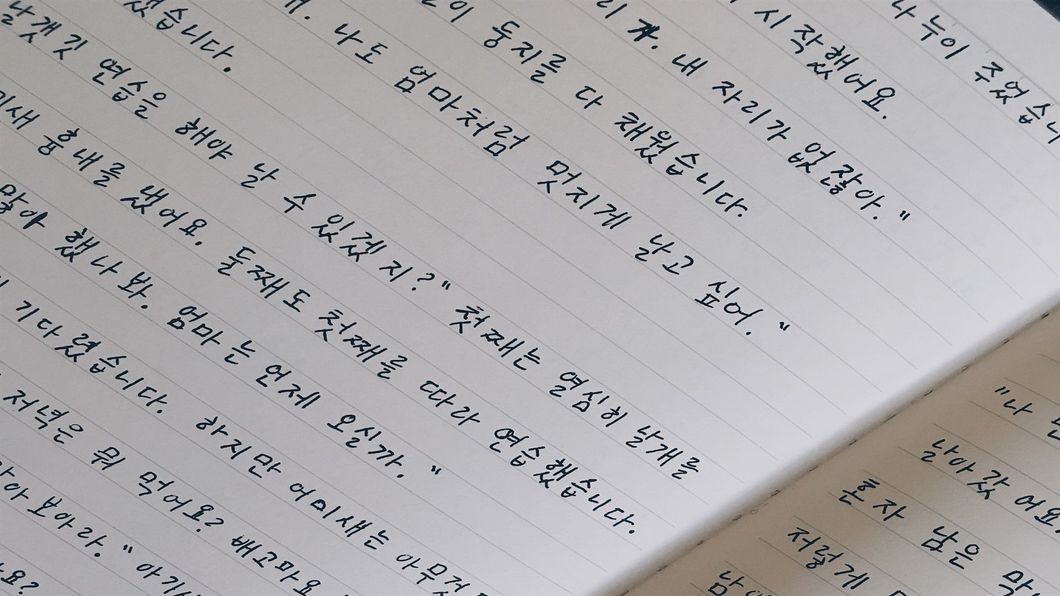 나누어 주었습니
시작했어요.
가. 내 자리가 없잖아."
이 둥지를 다 채웠습니다.
나도 엄마처럼 멋지게 날고 싶어."
했습니다.
날갯짓 연습을 해야 날 수 있겠지?" 첫째는 열심히 날개를
미새 흉내를 냈어요. 둘째도 첫째를 따라 연습했습니다.
했나 봐. 엄마는 언제 오실까."
기다렸습니다. 하지만 어미새는 아무것
저녁은 뭐 먹어요? 배고파요
보아라." 아기
요?
"나
날아갔어요
혼자 남은 막
저렇게
남